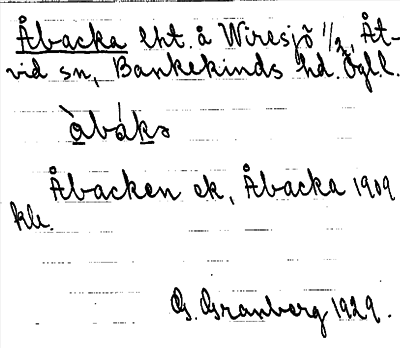 Åbacka lht. å Wiresjö 1/2, Åt-
vid sn, Bankekinds hd. Ögl. l.
Åbacken ek, Åbacka 1909
G. Granberg 1929.